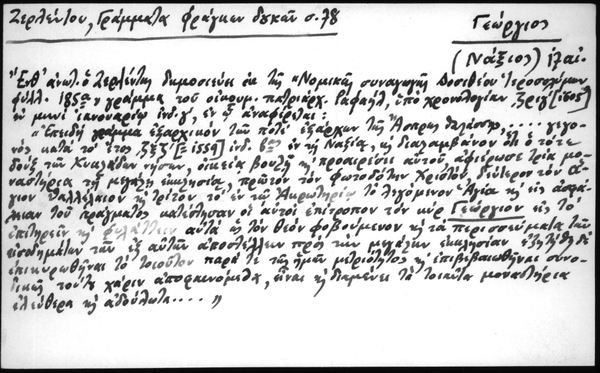 Ζερλέντου, Γράμματα φράγκων δουκῶν σ. 78
Γεώργιος
(Νάξιος) ἐλαι.
"Ἔνθ' ἀνωτ. ὁ Ζερλέντης δημοσιεύει ἐκ τῆς "Νομικῆς συναγωγῆς Δοσιθέου Ἱεροσολύμων
φύλλ. 185 γράμμα τοῦ οἰκουμ. πατριάρχ. Ῥαφαήλ, ὑπὸ χρονολογίαν ζριγ [=1605]
ἐν μηνὶ ἰανουαρίῳ ἰνδ. γ, ἐν ᾧ ἀναφέρεται:
"Ἐπειδὴ γράμμα ἐξαρχικὸν τῶν ποτὲ ἐξάρχων τῆς Ἄσπρης θαλάσσης, .... γεγο-
νὸς κατὰ τὸ ἔτος ζξζ [=1559] ἰνδ. β ἐν τῇ Ναξίᾳ, κὴ διαλαμβάνον ὅτι ὁ τότε
δοὺξ τῶν Κυκλάδων νήσων, οἰκείᾳ βουλῇ κὴ προαιρέσει αὐτοῦ ἀφιέρωσε τρία μο-
ναστήρια τῇ μεγάλῃ ἐκκλησίᾳ, πρῶτον τὸν φωτοδότην Χριστόν, δεύτερον τὸν ἅ-
γιον Θαλλέλαιον κὴ τρίτον τὸ ἐν τῷ Ἀκρωτηρίῳ τὸ λεγόμενον Ἁγία κὴ εἰς ἀσφά-
λειαν τοῦ πράγματος κατέστησαν οἱ αὐτοὶ ἐπίτροπον τὸν κὺρ Γεώργιον εἰς τὸ
ἐπιτηρεῖν κὴ φυλάττειν αὐτὰ ὡς τὸν θεὸν φοβούμενον κὴ τὰ περισσεύματα τῶν
εἰσοδημάτων τῶν ἐξ αὐτῶν ἀποστέλλειν πρὸς τὴν μεγάλην ἐκκλησίαν ἐζητήθη δὲ
ἐπικυρωθῆναι τὸ τοιοῦτον παρά τε τῆς ἡμῶν μετριότητος κὴ ἐπιβεβαιωθῆναι συνο-
δικῇ τούτου χάριν ἀποφαινόμεθα, εἶναι κὴ διαμένει τὰ τοιαῦτα μοναστήρια
ἐλεύθερα κὴ ἀδούλωτα .... "